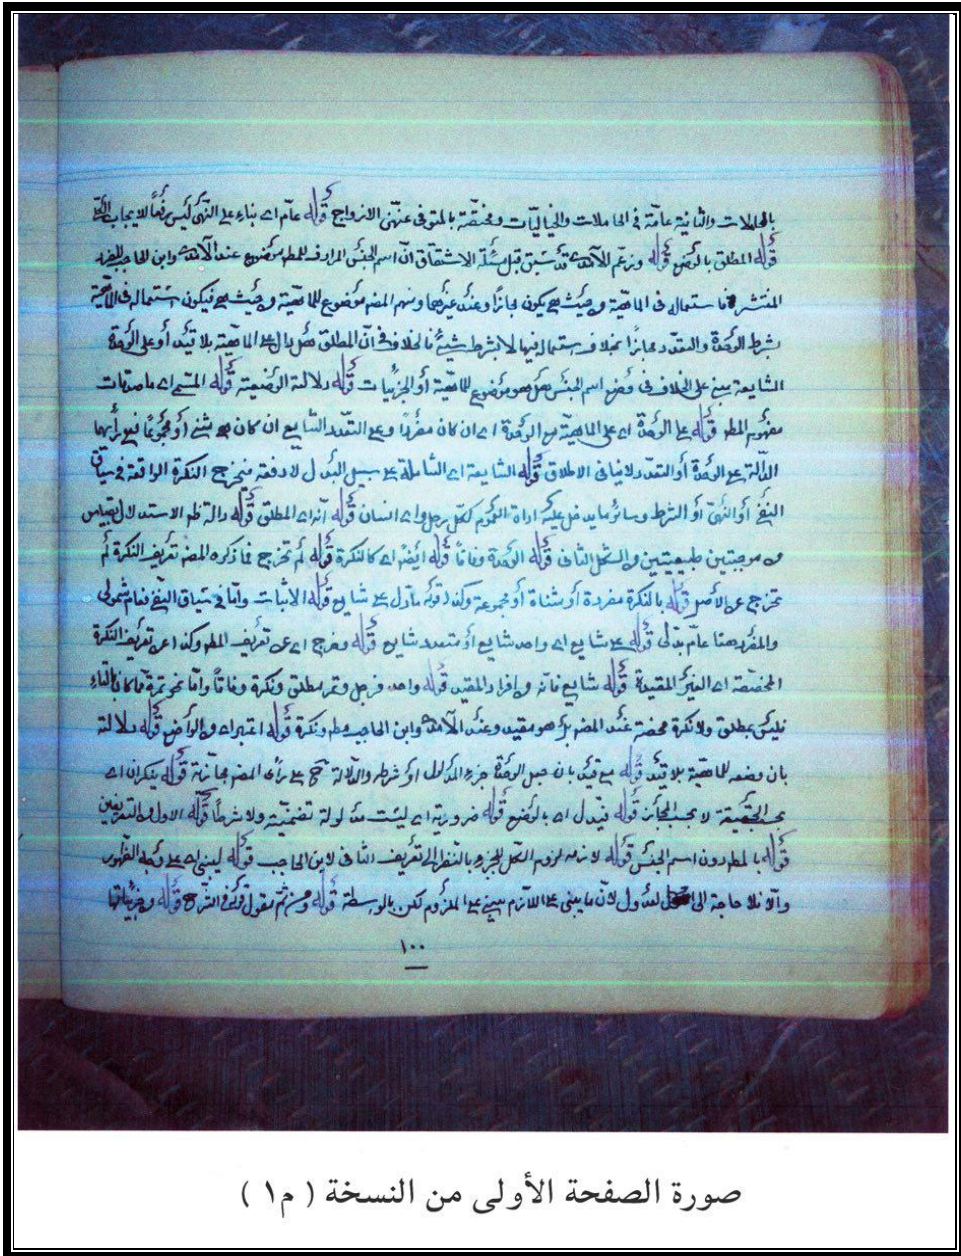 بالحاملات والثانية عامّة في الحاملات والحياليّات ومختصّة بالمتوفى عنهنّ الازواج قوله عامّ اى بناء على النّهى ليس رفعاً للايجاب
قوله المطلق بالوضع قوله وزعم الآمدى قد سبق قبل مسئلة الاشتقاق انّ اسم الجنس المرادف للمط موضوع عند الآمدى وابن الحاجب
المنتشر فاستعماله فى الماهيّة من حيث هى يكون مجازاً وعند غيرهما ومنهم المصنـ موضوع للماهيّة من حيث هى فيكون استعماله فى الماهيّة
بشرط الوحدة والتعدد مجازا بخلاف استعماله فيها لا بشرط شيئ فالخلاف فى انّ المطلق هل يدل على الماهيّة بلا قيد أو على الوحدة
الشايعة مبنى على الخلاف فى وضع اسم الجنس هل هو موضوع للماهيّة أو الجزئيات قوله دلالة الوضعية قوله المسمّى اى ماصدقات
مفهوم المط قوله على الوحدة اى على الماهيّة مع الوحدة اى ان كان مفرداً وعلى التعدد الشايع ان كان مثنى أو مجموعاً
الدّالة على الوحدة أو التعدد لا ينافى الاطلاق قوله الشايعة اى الشاملة على سبيل البدل لا دفعة فيخرج النكرة الواقعة فى سياق
النفى أو النهى أو الشرط وسائر ما يدخل عليه اداة العموم ككل رجل واى انسان قوله انّه اى المطلق قوله دالة نظم الاستدلال بقياس
من موجبتين طبيعيتين من الشكل الثانى قوله الوحدة وفاقاً قوله ايضا اى كالنكرة قوله لم تخرج فما ذكره المصنـ تعريف النكرة لم
تخرج عن الأصل قوله بالنكرة مفردة أو مثناة أو مجموعة وكذا قوله مادل على شايع قوله الاثبات وامّا فى سياق النفى فعام شمولى
والمفرد هنا عامّ بدلى قوله على شايع اى واحد شايع أو متعدد شايع قوله وخرج اى عن تعريف المط وكذا عن تعريف النكرة
المخصّصة اى الغير المقيدة قوله شايع فانّه من افراد المقيد قوله واحد فرجل وتمر مطلق ونكرة وفاقاً وامّا نحو تمرة مما كان بالتاء
فليس بمطلق ولا نكرة محضة عند المصنـ بل هو مقيد وعند الآمدى وابن الحاجب مط ونكرة قوله اعتبر اى من الواضع قوله دلالة
بان وضعه للماهيّة بلا قيد قوله مع قيد بان جعل الوحدة جزء المدلول أو شرطه والدّلالة ح على رأى المصنـ مجازية قوله ينكران اى
بحسب الحقيقة لا بحسب المجاز قوله فيدل اى بالوضع قوله ضرورية اى ليست مدلولة تضمنيّة ولا شرطاً قوله الاول من التعريفين
قوله بالمط دون اسم الجنس قوله لازمه لزوم الكل للجزء بالنظر الى تعريف الثانى لابن الحاجب قوله ليبنى اى على وجه الظهور
والّا فلا حاجة الى العدول لانّ ما يبنى على اللّازم يبنى على الملزوم لكن بالوسطة قوله ومن ثمّ مقول قولى فى الشرح قوله من جزئياتها
١٠٠
صورة الصفحة الأولى من النسخة ( م١ )